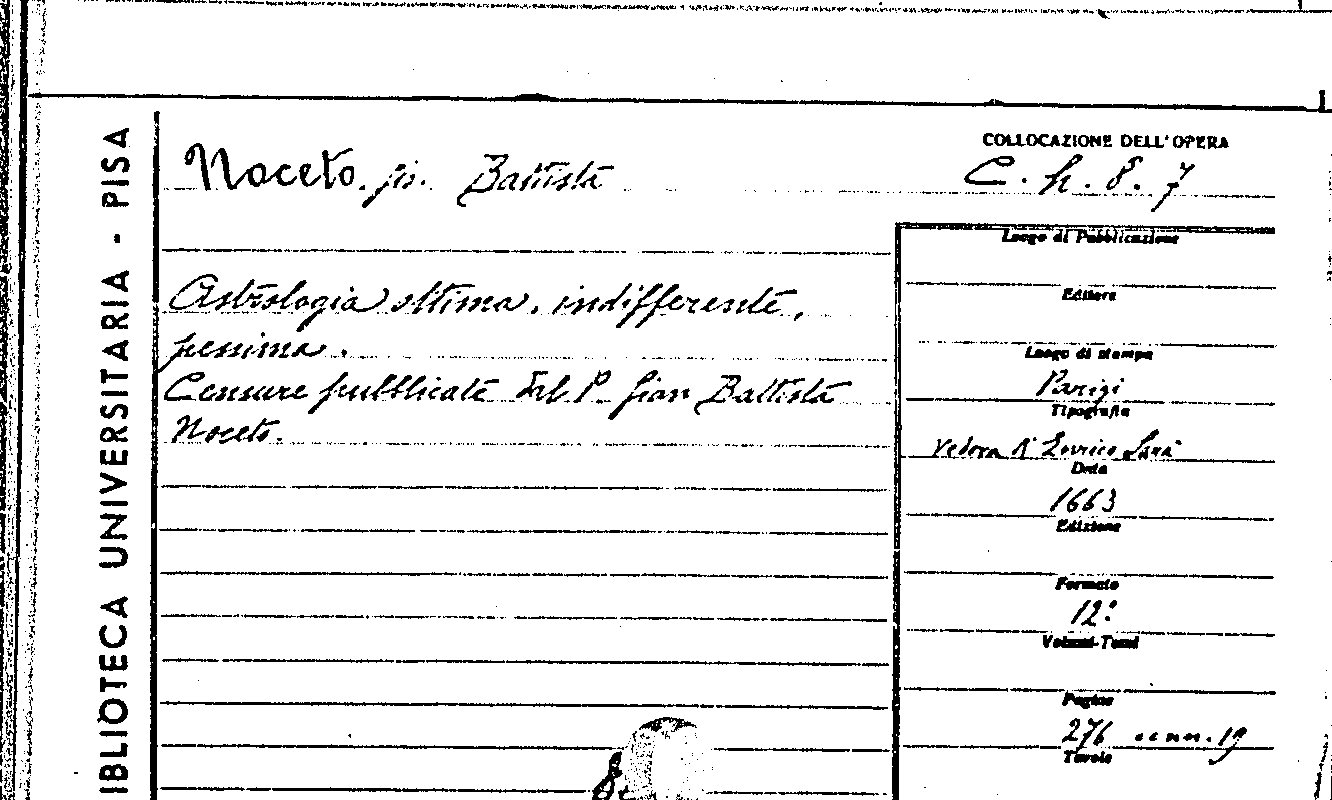 BIBLIOTECA UNIVERSITARIA - PISA
Noceto. Gi. Battista
COLLOCAZIONE DELL'OPERA
C. h. 8. 7
Astrologia ottima, indifferente,
pessima.
Censure pubblicate dal P. Gian Battista
Noceto.
Luogo di Pubblicazione
Editore
Luogo di stampa
Parigi
Tipografia
Vedova
Data
1663
Edizione
Formato
12°
Volumi-Tomi
Pagine
276 cc nn. 19
Tavole